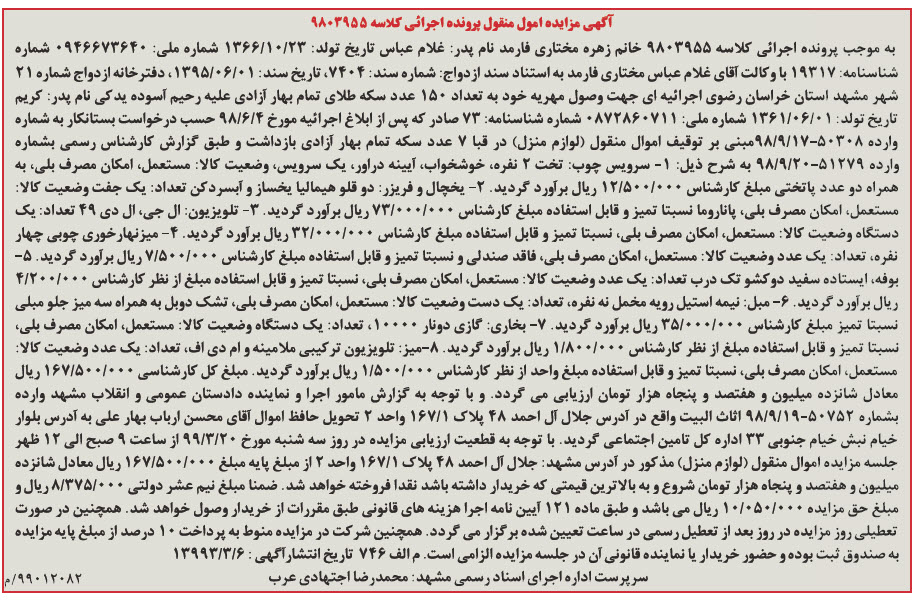 آگهی مزایده اموال منقول پرونده اجرائی کلاسه ۹۸۰۳۹۵۵
به موجب پرونده اجرائی کلاسه ۹۸۰۳۹۵۵ خانم زهره مختاری فارمد نام پدر: غلام عباس تاریخ تولد: ۱۳۶۶/۱۰/۲۳ شماره ملی: ۰۹۴۶۶۷۳۶۴۰ شماره
شناسنامه: ۱۹۳۱۷ با وکالت آقای غلام عباس مختاری فارمد به استناد سند ازدواج: شماره سند: ۷۴۰۴، تاریخ سند: ۱۳۹۵/۰۶/۰۱، دفترخانه ازدواج شماره ۲۱
شهر مشهد استان خراسان رضوی اجرائیه ای جهت وصول مهریه خود به تعداد ۱۵۰ عدد سکه طلای تمام بهار آزادی علیه رحیم آسوده یدکی نام پدر: کریم
تاریخ تولد: ۱۳۶۱/۰۶/۰۱ شماره ملی: ۰۸۷۲۸۶۰۷۱۱ شماره شناسنامه: ۷۳ صادر که پس از ابلاغ اجرائیه مورخ ۹۸/۶/۴ حسب درخواست بستانکار به شماره
وارده ۵۰۳۰۸-۹۸/۹/۱۷مبنی بر توقیف اموال منقول (لوازم منزل) در قبا ۷ عدد سکه تمام بهار آزادی بازداشت و طبق گزارش کارشناس رسمی بشماره
وارده ۵۱۲۷۹-۹۸/۹/۲۰ به شرح ذیل: ۱- سرویس چوب: تخت ۲ نفره، خوشخواب، آیینه دراور، یک سرویس، وضعیت کالا: مستعمل، امکان مصرف بلی، به
همراه دو عدد پاتختی مبلغ کارشناس ۱۲/۵۰۰/۰۰۰ ریال برآورد گردید. ۲- یخچال و فریزر: دو قلو هیمالیا یخساز و آبسردکن تعداد: یک جفت وضعیت کالا:
مستعمل، امکان مصرف بلی، پاناروما نسبتا تمیز و قابل استفاده مبلغ کارشناس ۷۳/۰۰۰/۰۰۰ ریال برآورد گردید. ۳- تلویزیون: ال جی، ال دی ۴۹ تعداد: یک
دستگاه وضعیت کالا: مستعمل، امکان مصرف بلی، نسبتا تمیز و قابل استفاده مبلغ کارشناس ۳۲/۰۰۰/۰۰۰ ریال برآورد گردید. ۴- میزنهارخوری چوبی چهار
نفره، تعداد: یک عدد وضعیت کالا: مستعمل، امکان مصرف بلی، فاقد صندلی و نسبتا تمیز و قابل استفاده مبلغ کارشناس ۷/۵۰۰/۰۰۰ ریال برآورد گردید. ۵-
بوفه، ایستاده سفید دوکشو تک درب تعداد: یک عدد وضعیت کالا: مستعمل، امکان مصرف بلی، نسبتا تمیز و قابل استفاده مبلغ از نظر کارشناس ۴/۲۰۰/۰۰۰
ریال برآورد گردید. ۶- مبل: نیمه استیل رویه مخمل نه نفره، تعداد: یک دست وضعیت کالا: مستعمل، امکان مصرف بلی، تشک دوبل به همراه سه میز جلو مبلی
نسبتا تمیز مبلغ کارشناس ۳۵/۰۰۰/۰۰۰ ریال برآورد گردید. ۷- بخاری: گازی دونار ۱۰۰۰۰، تعداد: یک دستگاه وضعیت کالا: مستعمل، امکان مصرف بلی،
نسبتا تمیز و قابل استفاده مبلغ از نظر کارشناس ۱/۸۰۰/۰۰۰ ریال برآورد گردید. ۸-میز: تلویزیون ترکیبی ملامینه و ام دی اف، تعداد: یک عدد وضعیت کالا:
مستعمل، امکان مصرف بلی، نسبتا تمیز و قابل استفاده مبلغ واحد از نظر کارشناس ۱/۵۰۰/۰۰۰ ریال برآورد گردید. مبلغ کل کارشناسی ۱۶۷/۵۰۰/۰۰۰ ریال
معادل شانزده میلیون و هفتصد و پنجاه هزار تومان ارزیابی می گردد. و با توجه به گزارش مامور اجرا و نماینده دادستان عمومی و انقلاب مشهد وارده
بشماره ۵۰۷۵۲-۹۸/۹/۱۹ اثاث البیت واقع در آدرس جلال آل احمد ۴۸ پلاک ۱۶۷/۱ واحد ۲ تحویل حافظ اموال آقای محسن ارباب بهار علی به آدرس بلوار
خیام نبش خیام جنوبی ۳۳ اداره کل تامین اجتماعی گردید. با توجه به قطعیت ارزیابی مزایده در روز سه شنبه مورخ ۹۹/۳/۲۰ از ساعت ۹ صبح الی ۱۲ ظهر
جلسه مزایده اموال منقول (لوازم منزل) مذکور در آدرس مشهد: جلال آل احمد ۴۸ پلاک ۱۶۷/۱ واحد ۲ از مبلغ پایه مبلغ ۱۶۷/۵۰۰/۰۰۰ ریال معادل شانزده
میلیون و هفتصد و پنجاه هزار تومان شروع و به بالاترین قیمتی که خریدار داشته باشد نقدا فروخته خواهد شد. ضمنا مبلغ نیم عشر دولتی ۸/۳۷۵/۰۰۰ ریال و
مبلغ حق مزایده ۱۰/۰۵۰/۰۰۰ ریال می باشد و طبق ماده ۱۲۱ آیین نامه اجرا هزینه های قانونی طبق مقررات از خریدار وصول خواهد شد. همچنین در صورت
تعطیلی روز مزایده در روز بعد از تعطیل رسمی در ساعت تعیین شده برگزار می گردد. همچنین شرکت در مزایده منوط به پرداخت ۱۰ درصد از مبلغ پایه مزایده
به صندوق ثبت بوده و حضور خریدار یا نماینده قانونی آن در جلسه مزایده الزامی است. م الف ۷۴۶ تاریخ انتشارآگهی : ۱۳۹۹۳/۳/۶
سرپرست اداره اجرای اسناد رسمی مشهد: محمدرضا اجتهادی عرب
۹۹۰۱۲۰۸۲/م